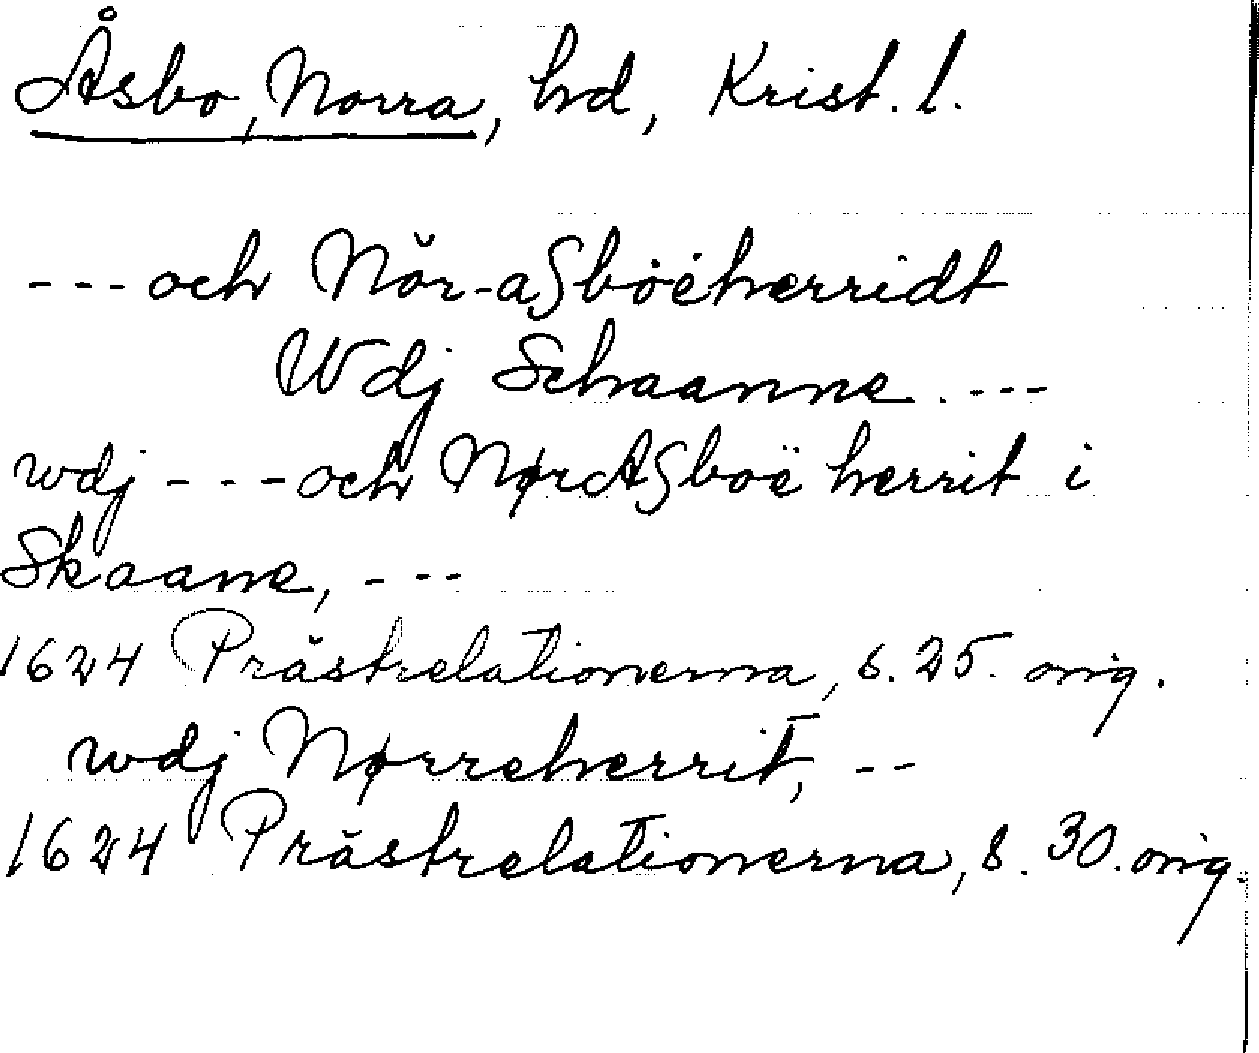 Åsbo, Norra, hd, Krist. l.
--- och Nŏr-aſböëherridt
Wdj Schaanne. ---
wdj --- och NørAſboë herrit i
Skaane, ---
1624 Prästrelationerna, s. 25. orig.
wdj Nørreherrit, --
1624 Prästrelationerna, s. 30. orig.